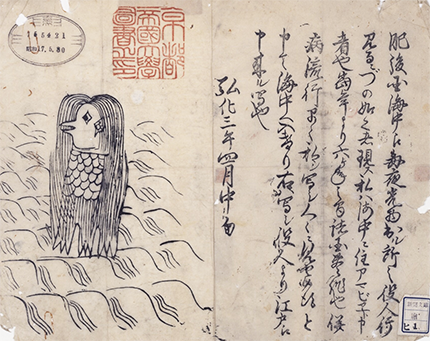 肥後国海中え毎夜光物出ル所之役人行
見るニづの如く者現ス私ハ海中ニ住アマビヱト申
者也当年より六ヶ年之間諸国豊作也併
病流行早々私ヲ写シ人々ニ見せ候得と
申て海中へ入けり右写シ役人より江戸え
申来ル写也
弘化三年四月中旬
京都
帝國大學
圖書之印